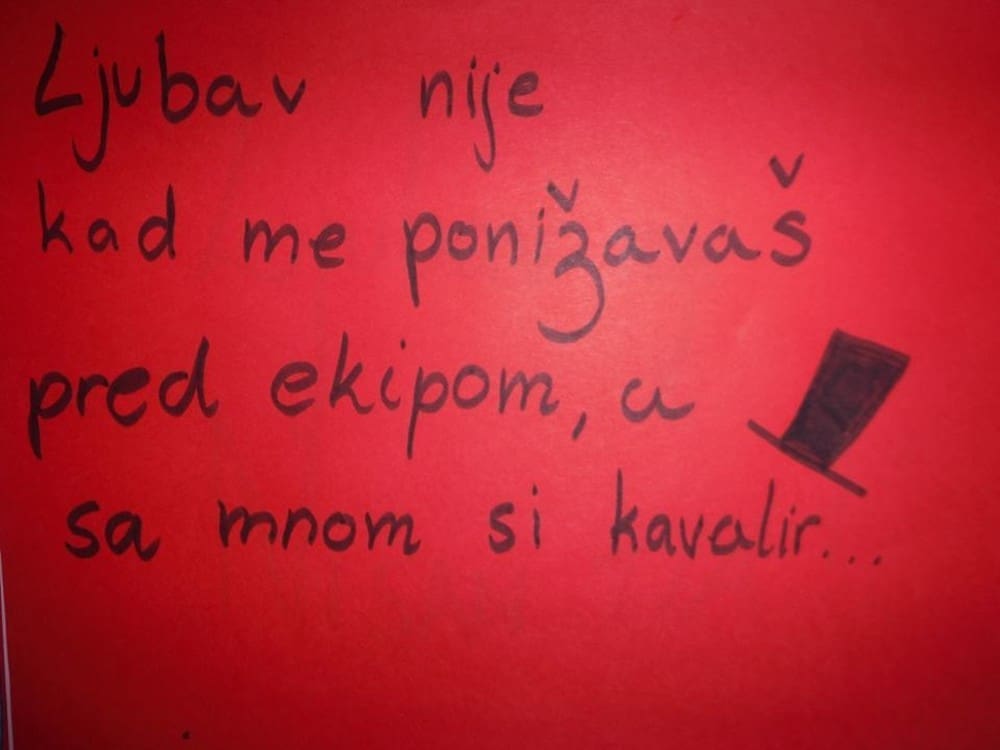 Ljubav nije
kad me ponižavaš
pred ekipom, a
sa mnom si kavalir...